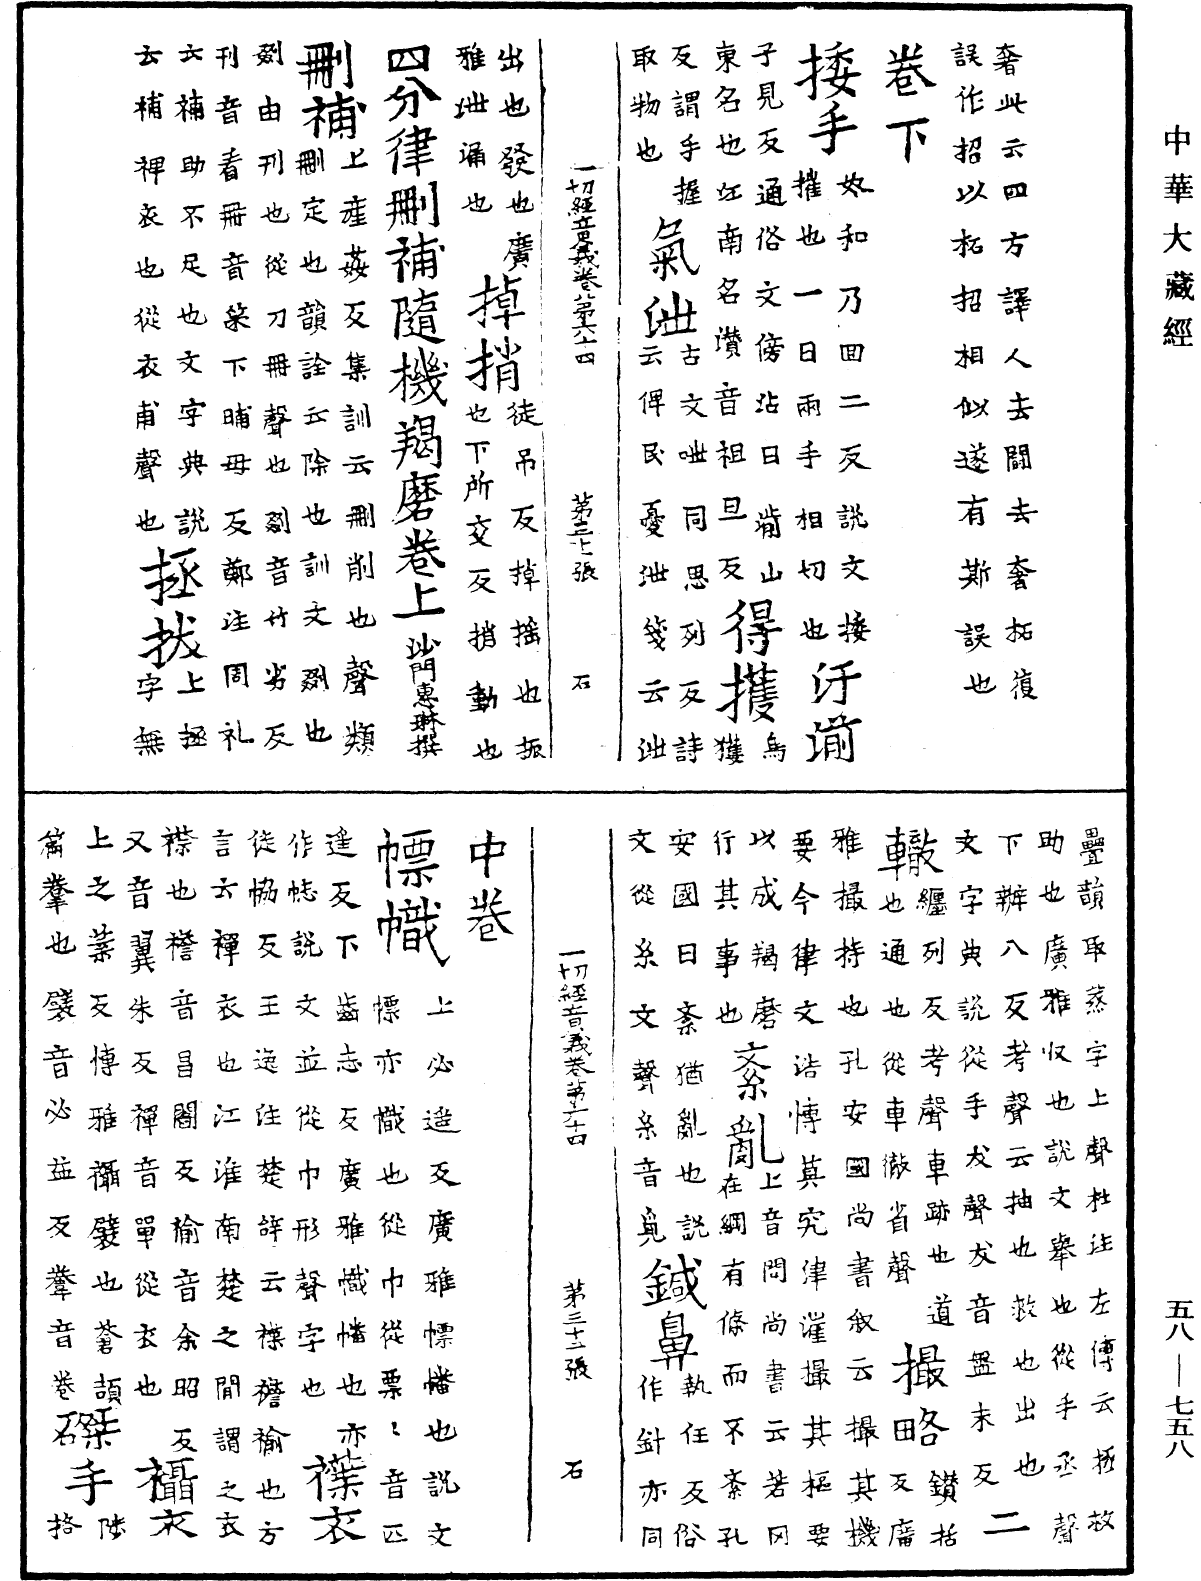 中華大藏經
奢此云四方譯人去鬪去奢拓復
誤作招以柘招相似遂有斯誤也
卷下
捼手 奴和乃回二反說文捼
摧也一日兩手相切也 汙湔
子見反通俗文傍沾曰湔山
東名也江南名灒音祖旦反 得擭 烏獲
反謂手握
取物也 氣泄 古文呭同思列反詩
云俾民憂泄箋云泄
出也發也廣
雅泄漏也 掉捎 徒吊反掉搖也振
也下所交反捎動也
一切經音義卷第六十四 第三十張 石
四分律刪補隨機羯磨卷上 沙門惠琳撰
刪補 上產姦反集訓云刪削也聲類
刪定也韻詮云除也訓文剟也
剟由刊也從刀冊聲也剟音竹劣反
刊音看冊音筞下晡母反鄭注周礼
云補助不足也文字典說
云補裨衣也從衣甫聲也 拯拔 上拯
字無
疊韻取蒸字上聲杜注左傳云拯救
助也廣雅收也說文舉也從手丞聲
下辨八反考聲云抽也救也出也
文字典說從手犮聲犮音盤末反 二
轍 纏列反考聲車跡也道
也通也從車徹省聲 撮略 鑚括
反廣
雅撮持也孔安國尚書叙云撮其機
要今律文誥博莫究津漼撮其樞要
以成羯磨
行其事也 紊亂 上音問尚書云若冈
在綱有條而不紊孔
安國曰紊猶亂也說
文從糸文聲糸音覓 鍼鼻 執任反俗
作針亦同
一切經音義卷第六十四 第三十二張 石
中卷
幖幟 上必遥反廣雅幖幡也說文
幖亦幟也從巾從票〻音匹
遥反下齒志反廣雅幟幡也亦
作㤅說文並從巾形聲字也 褋衣
徒協反王逸注楚辞云褋襜褕也方
言云禪衣也江淮南楚之間謂之衣
襟也襜音昌閻反褕音余昭反
又音翼朱反禪音單從衣也 襵衣
上之葉反博雅襵襞也蒼頡
篇韏也襞音必益反韏音卷 磔手 陟
挌
五八—七五八